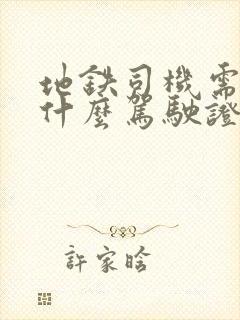 地鉄司機需
什麼駕駛證
許家晗